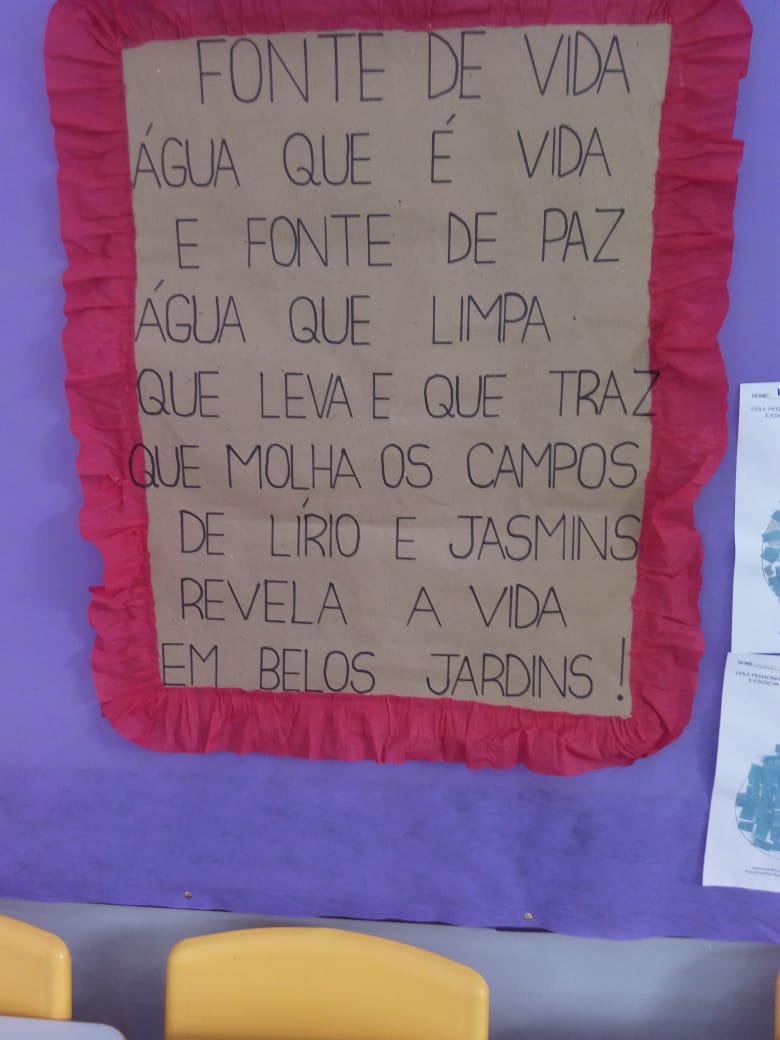 FONTE DE VIDA
ÁGUA QUE É VIDA
E FONTE DE PAZ
ÁGUA QUE LIMPA
QUE LEVA E QUE TRAZ
QUE MOLHA OS CAMPOS
DE LÍRIO E JASMINS
REVELA A VIDA
EM BELOS JARDINS!
NOME:
NOME: